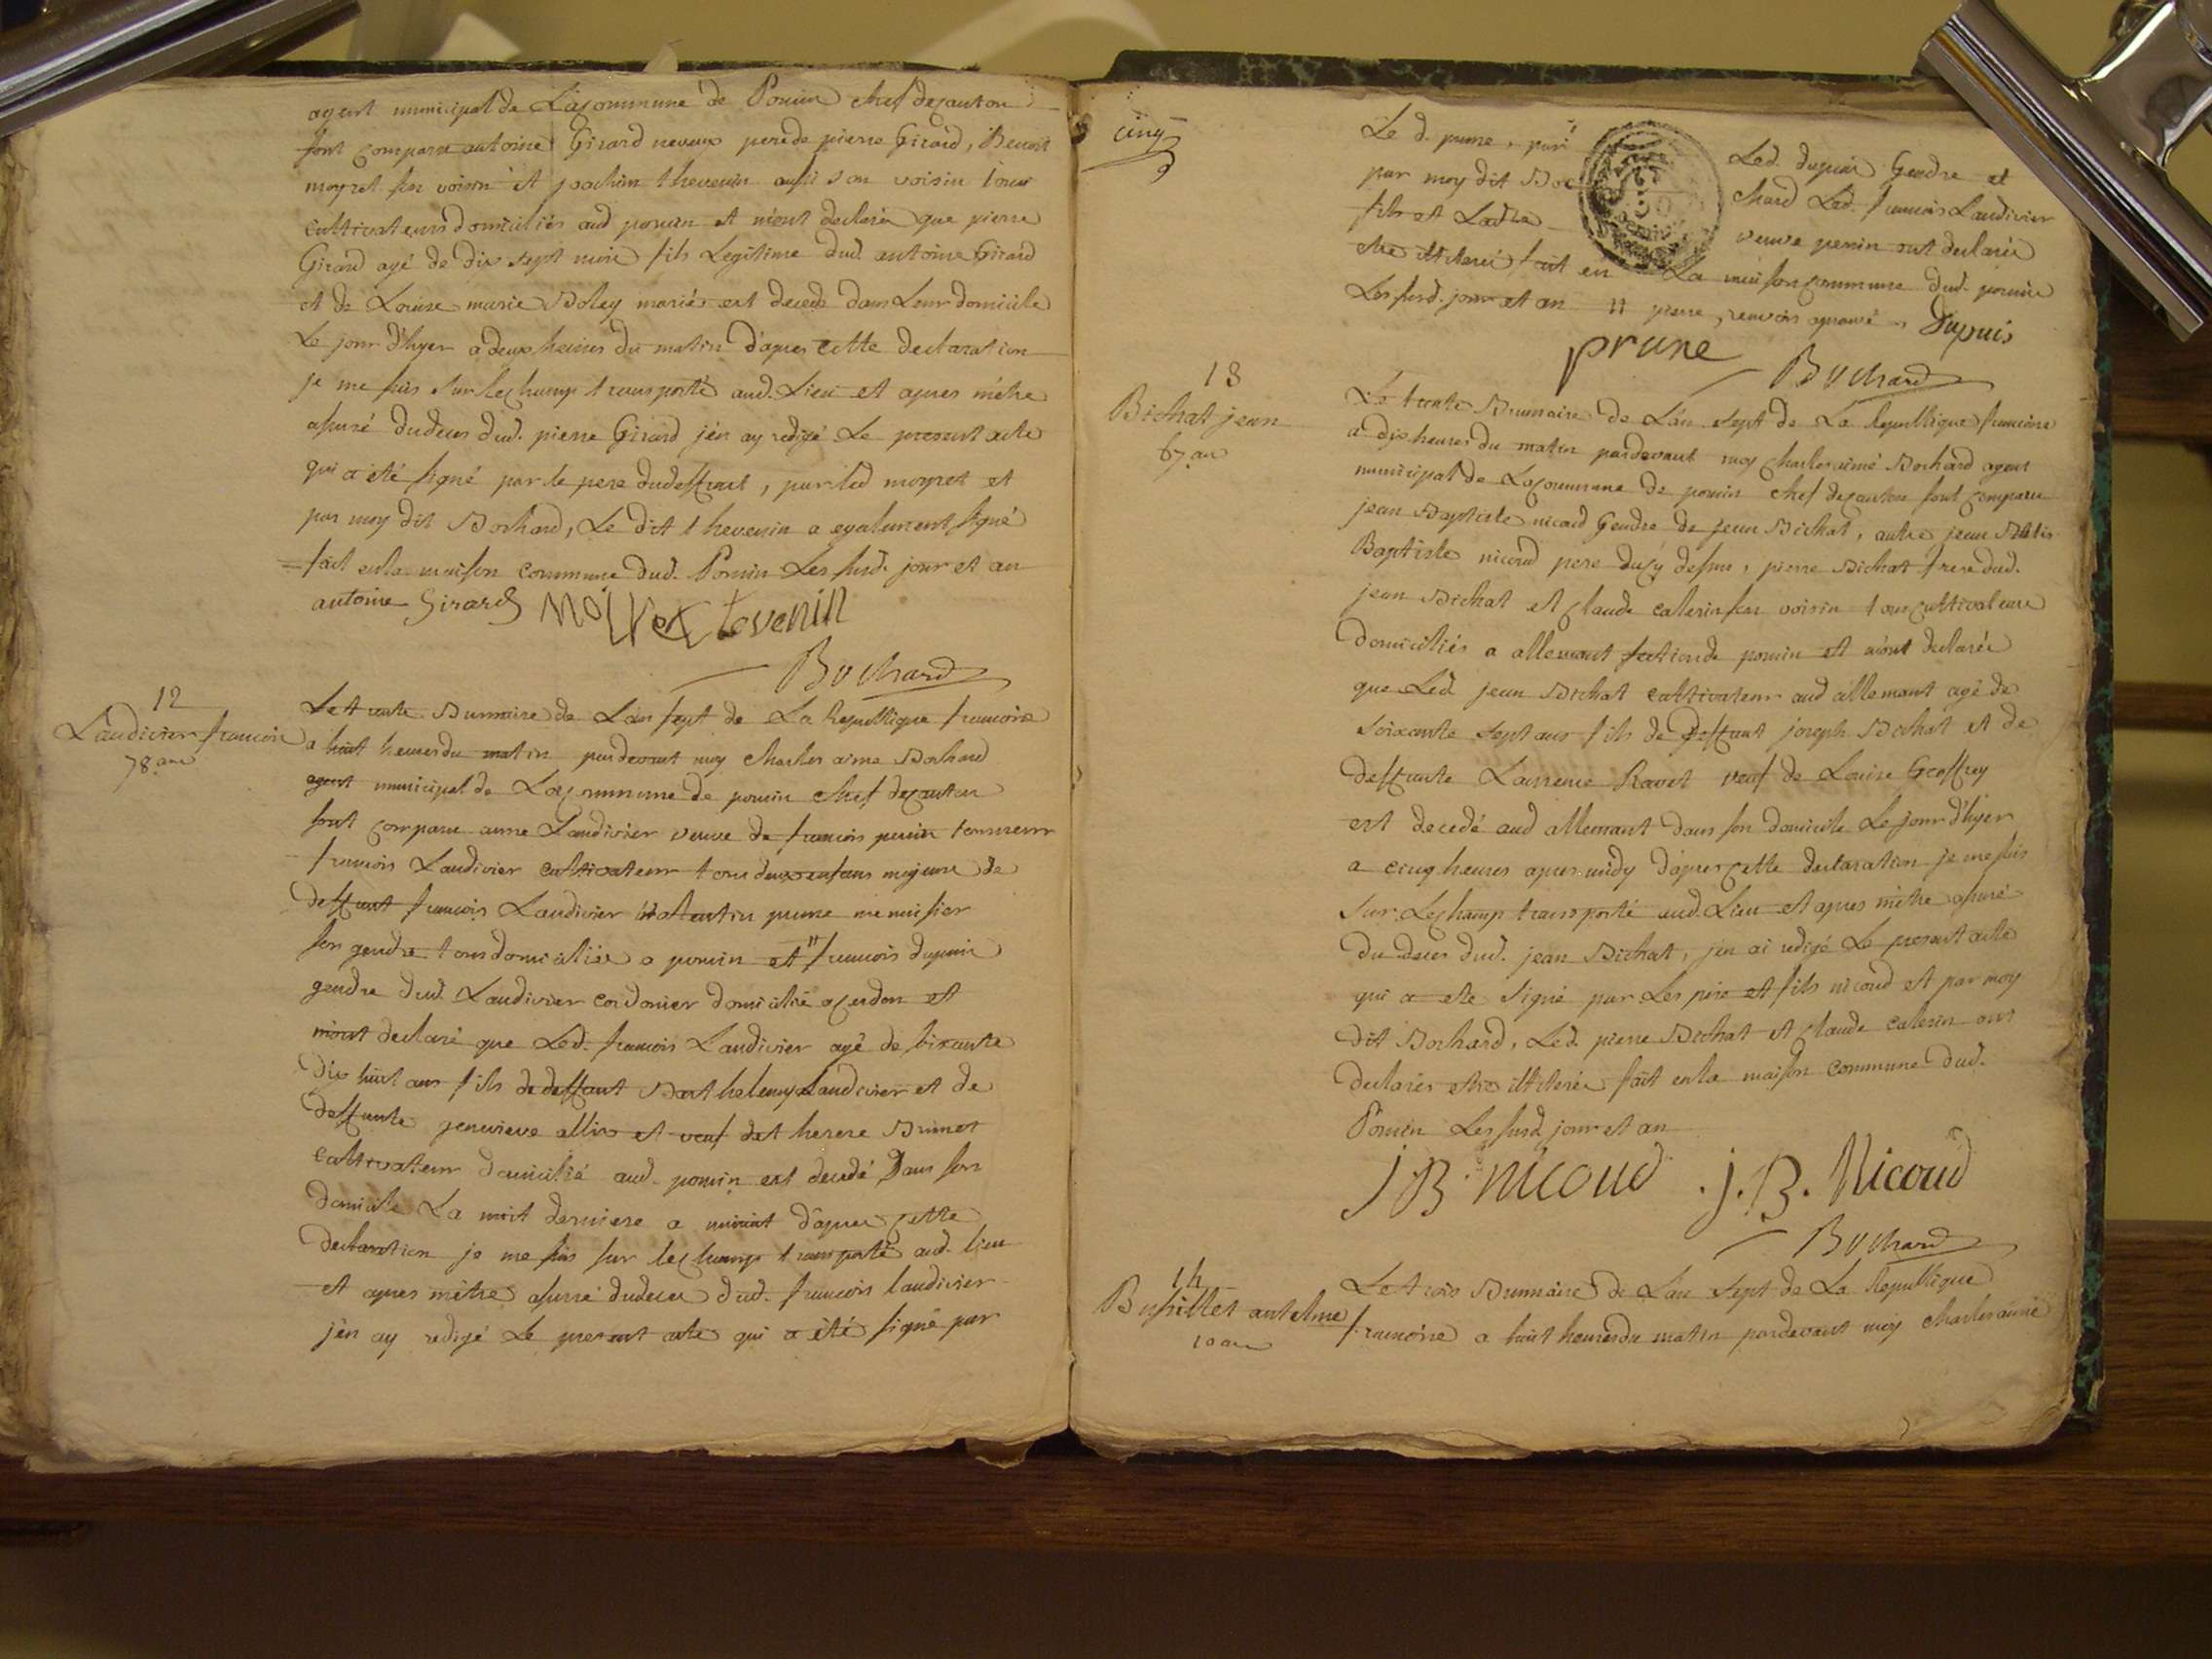 agent municipal de La commune de Poncin chef de canton
sont comparu antoine Girard neveux pere de pierre Girard, Benoit
moyret son voisin et joachim thevenin aussi son voisin tous
cultivateurs domiciliés aud poncin et m'ont declarés que pierre
Girard agé de dix sept mois fils Legitime dud. antoine Girard
et de Louise marie Boley mariés est decedé dans Leur domicile
Le jour d'hyer a deux heures du matin d'apres cette declaration
je me suis sur le champ transporté aud. Lieu et apres m'etre
assuré du deces dud. pierre Girard j'en ay redigé Le present acte
qui a été signé par le pere du deffunt, par led moyret et
par moy dit Bochard, Le dit thevenin a egalement signé
= fait en la maison commune dud. Poncin Les susd. jour et an
antoine Girard Moyret tevenin
Bochard
12
Laudivier francois
78 ans
Le trente Brumaire de L'an sept de La Republique francoise
a huit heures du matin pardevant moy Charles aimé Bochard
agent municipal de La commune de poncin chef de canton
sont comparu anne Laudivier veuve de francois perrin
francois Laudivier cultivateur tous deux enfans majeurs de
deffunt francois Laudivier valentin prune menuisier
son gendre tous domiciliés a poncin et " francois dupuis
gendre dud. Laudivier cordonier domicilié a cerdon et
m'ont declaré que Led. francois Laudivier agé de soixante
dix huit ans fils de deffunt Barthelemy Laudivier et de
deffunte genevieve allix et veuf de therese Brunet
cultivateur domicilié aud. poncin est decedé Dans son
domicile La nuit derniere a minuit d'apres cette
declaration je me suis sur le champ transporté aud. lieu
et apres m'etre assuré du deces dud. francois laudivier
j'en ay redigé Le present acte qui a été signé par
cinq
Le d. prune, par Led. dupuis Gendre et
par moy dit Bochard Led. francois Laudivier
fils et Ladte veuve perrin ont declarés
etre illiterés fait en La maison commune dud. poncin
Les susd. jour et an " pierre, renvois aprouvé " Dupuis
prune
Bochard
13
Bichat jean
67 ans
Le trente Brumaire de L'an sept de La Republique francoise
a dix heures du matin pardevant moy Charles aimé Bochard agent
municipal de La commune de poncin chef de canton sont comparu
jean Baptiste nicoud Gendre de jean Bichat, autre jean
Baptiste nicoud pere du cy dessus, pierre Bichat frere dud.
jean Bichat et Claude caterin son voisin tous cultivateurs
domiciliés a allemant section de poncin et m'ont declarés
que Led. jean Bichat cultivateur aud allemant agé de
soixante sept ans fils de deffunt joseph Bichat et de
deffunte Laurence Ravet veuf de Louise Geoffrey
est decedé aud allemant dans son domicile Le jour d'hyer
a cinq heures apres midy d'apres cette declaration je me suis
sur Le champ transporté aud. Lieu et apres m'etre assuré
du deces dud. jean Bichat, j'en ai redigé Le present acte
qui a ete signé par Les pere et fils nicoud et par moy
dit Bochard, Led. pierre Bichat et Claude caterin ont
declarés etre illiterés fait en la maison commune dud.
Poncin Les susd. jour et an
J B. nicoud J. B. Nicoud
Bochard
14
Bussillet antelme
10 ans
Le trois Brumaire de L'an sept de La Republique
francoise a huit heures du matin pardevant moy Charles aimé